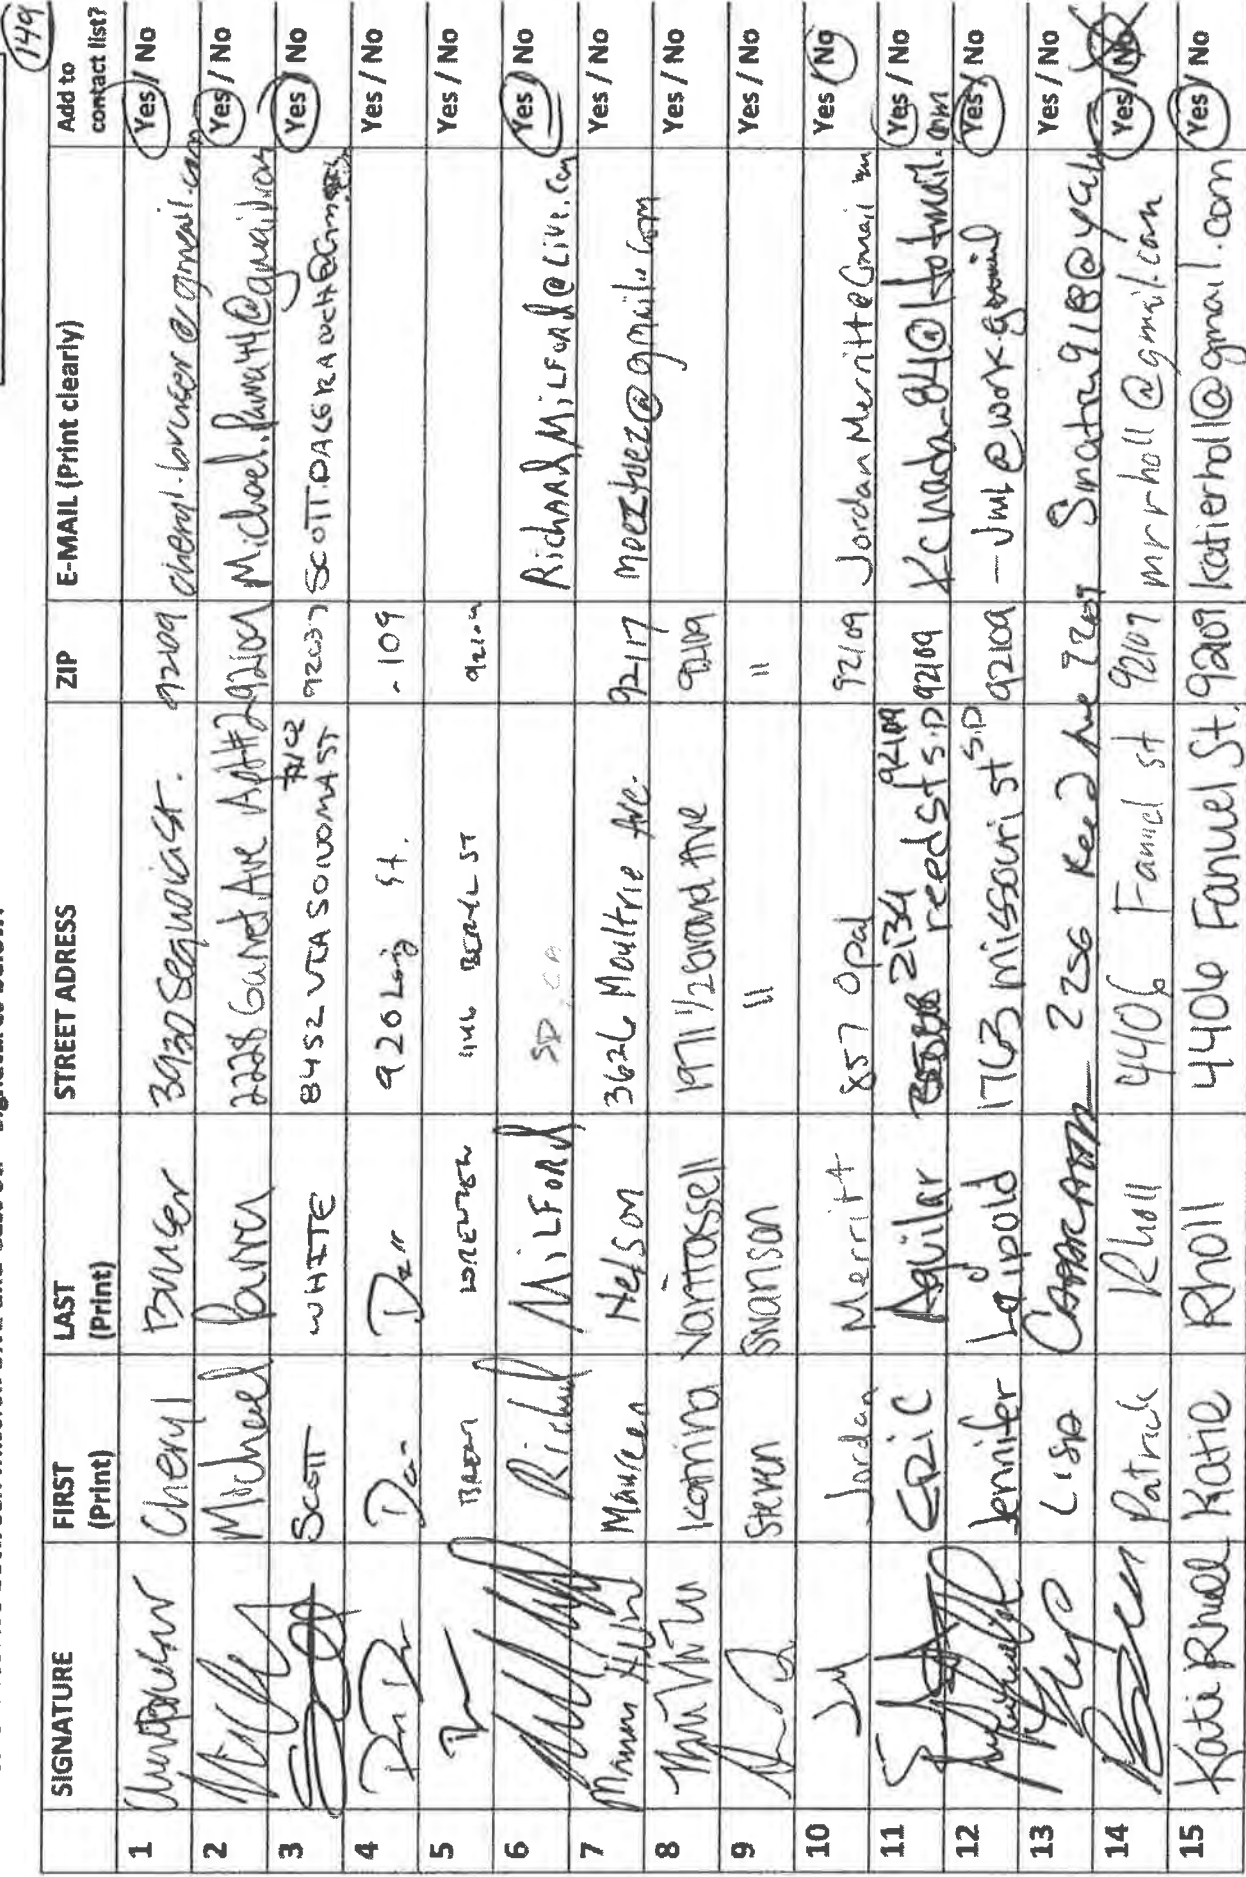 149
SIGNATURE FIRST (Print) LAST (Print) STREET ADRESS ZIP E-MAIL (Print clearly) Add to contact list?
1 Cheryl 3920 Sequoia St. 92109 Yes / No
2 Michael Parra 2228 Garnet Ave Apt#2 92109 Michael.Parra44@gmail.com Yes / No
3 SCOTT WHITE 8452 VIA SONOMA ST 92037 Yes / No
4 Dan 920 St. -109 Yes / No
5 LORENZEN ST 92109 Yes / No
6 Richard MiLFORd SD, CA RichARdMiLFORd@Live.Com Yes / No
7 Maureen Nelson 3626 Moultrie Ave. 92117 @gmail.com Yes / No
8 Katrina VanTassell 1971 1/2 Grand Ave 92109 Yes / No
9 Steven Swanson " " Yes / No
10 Jordan Merritt 857 Opal 92109 JordanMerritt@Gmail Yes / No
11 ERiC Aguilar 2134 reed st S.D 92109 92109 @Hotmail.com Yes / No
12 Jennifer Leipold 1763 missouri st S.D 92109 @work.gmail Yes / No
13 LISA 2256 Reed Ave 92109 Sinatra918@ Yes / No
14 Patrick Rholl 4406 Fanuel st 92109 mrrholl@gmail.com Yes / No
15 Katie Rholl Katie Rholl 4406 Fanuel St. 92109 katierholl@gmail.com Yes / No